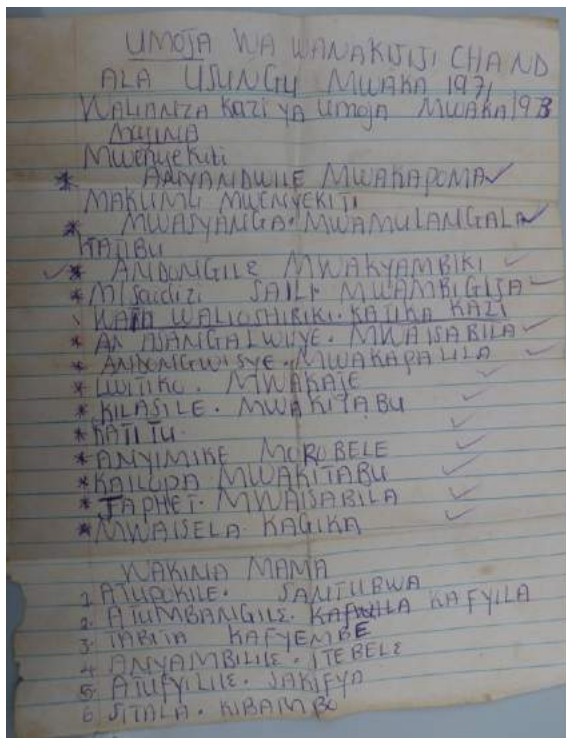 UMOJA WA WANAKIJIJI CHAND
ALA USUNGU MWAKA 1971
WALIANZA KAZI YA UMOJA MWAKA 1973
MAJINA
Mwenyekiti
* ANYANDWILE MWAKAPOMA ✓
MAKUMU MWENYEKITI
* MWASYANGA. MWAMULANGALA ✓
KATIBU
✓ * ANDONGILE MWAKYAMBIKI ✓
* Msaidizi SAILI MWAMBIGISA ✓
WATU WALIOSHIRIKI. KATIKA KAZI
* AN ASANGALWIYE. MWAISABILA ✓
* ANDONGWISYE. MWAKAPALILA ✓
* LWITIKO. MWAKAJE ✓
* KILASILE. MWAKITABU ✓
* KATITU. ✓
* ANYIMIKE MOROBELE ✓
* KAILOPA MWAKITABU ✓
* JAPHET. MWAISABILA ✓
* MWAISELA KAGIKA ✓
WAKINA MAMA
1 ATUPOKILE. SANTUBWA
2. ATUMBANGILE. KAFYILA
3. TABITA KAFYEMBE
4 ANYAMBILILE. ITEBELE
5. ATUFYILILE. SAKIFYA
6 SITALA. KIBAMBO